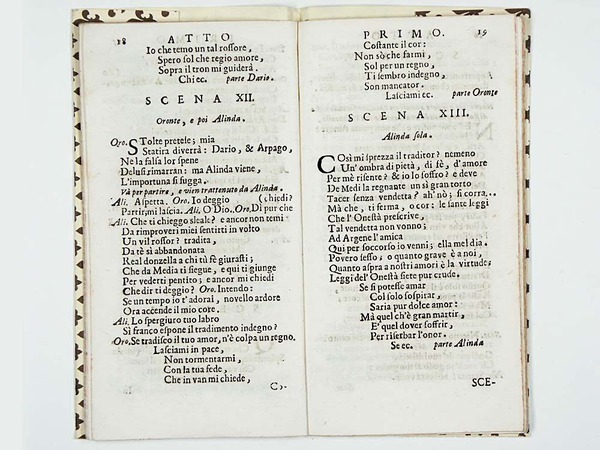 18 ATTO
Io che temo un tal rossore,
Spero sol che regio amore,
Sopra il tron mi guiderà.
Chi ec. parte Dario.
SCENA XII.
Oronte, e poi Alinda.
Oro. STolte pretese; mia
Statira diverrà: Dario, & Arpago,
Ne la falsa lor spene
Delusi rimarran: ma Alinda viene,
L'importuna si fugga.
Và per partire, e vien trattenuto da Alinda.
Ali. Aspetta. Oro. Io deggio (chiedi?
Partir, mi lascia. Ali. O Dio. Oro. Di pur che
Ali. Che ti chieggo sleale? e ancor non temi
Da rimproveri miei sentirti in volto
Un vil rossor? tradita,
Da tè sì abbandonata
Real donzella a chi tù fè giurasti;
Che da Media ti siegue, e qui ti giunge
Per vederti pentito; e ancor mi chiedi
Che dir ti deggio? Oro. Intendo:
Se un tempo io t'adorai, novello ardore
Ora accende il mio core.
Ali. Lo spergiuro tuo labro
Sì franco espone il tradimento indegno?
Oro. Se tradisco il tuo amor, n'è colpa un regno.
Lasciami in pace,
Non tormentarmi,
Con la tua fede,
Che in van mi chiede,
Co-
PRIMO. 19
Costante il cor:
Non sò che farmi,
Sol per un regno,
Ti sembro indegno,
Son mancator.
Lasciami ec. parte Oronte
SCENA XIII.
Alinda sola.
COsì mi sprezza il traditor? nemeno
Un'ombra di pietà, di fè, d'amore
Per mè risente? & io lo soffro? e deve
De Medi la regnante un sì gran torto
Tacer senza vendetta? ah' nò; si corra...
Mà che, ti ferma, o cor: le sante leggi
Che l'Onestà prescrive,
Tal vendetta non vonno;
Ad Argene l'amica
Qui per soccorso io venni; ella mel dia.
Povero sesso; o quanto grave è a noi,
Quanto aspra a nostri amori è la virtude;
Leggi del'Onestà siete pur crude.
Se si potesse amar
Col solo sospirar,
Saria pur dolce amor:
Mà quel ch'è gran martir,
E' quel dover soffrir,
Per riserbar l'onor.
Se ec. parte Alinda
SCE-